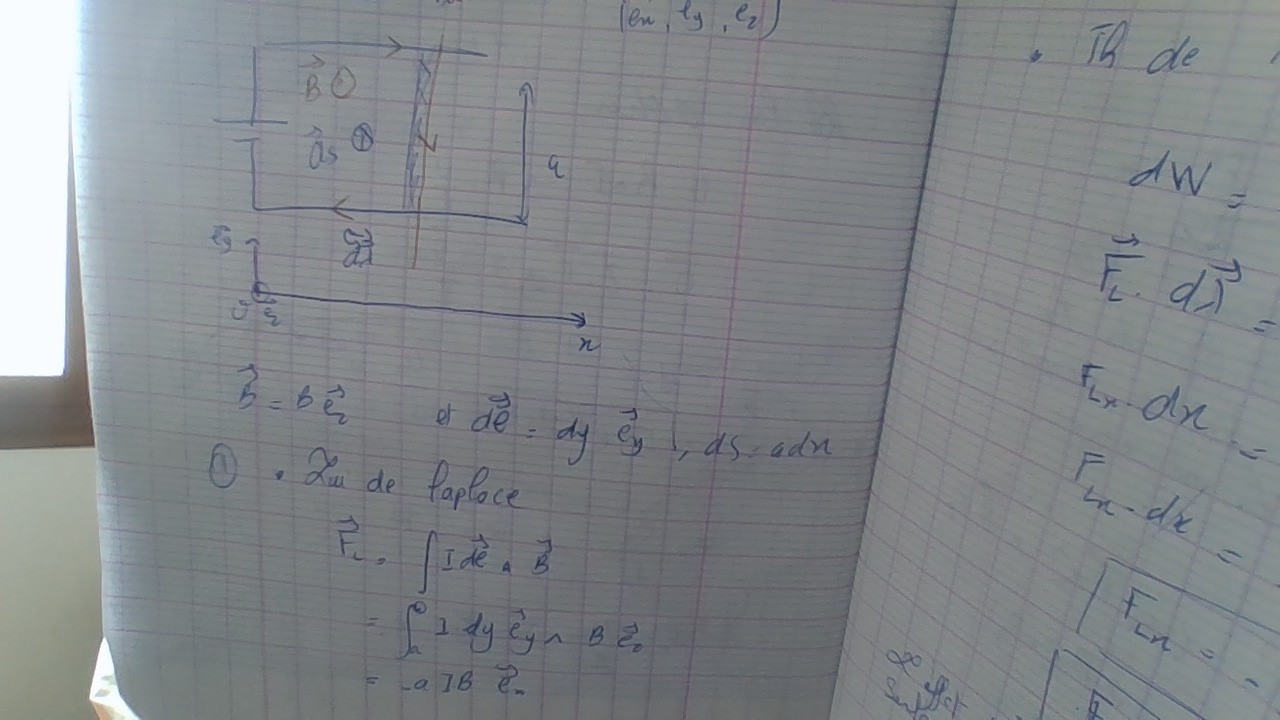 (ex, ey, ez)
B⃗ ⊙
dS⃗ ⊕
a
x
B⃗ = B e⃗z et dℓ⃗ = dy e⃗y, dS = adx
① • Loi de Laplace
F⃗L = ∫ I dℓ⃗ ∧ B⃗
= ∫ₐ⁰ I dy e⃗y ∧ B e⃗z
= -a I B e⃗x
• Th de
dW =
F⃗L . dλ⃗ =
FLx . dx =
FLx . dx =
FLx =